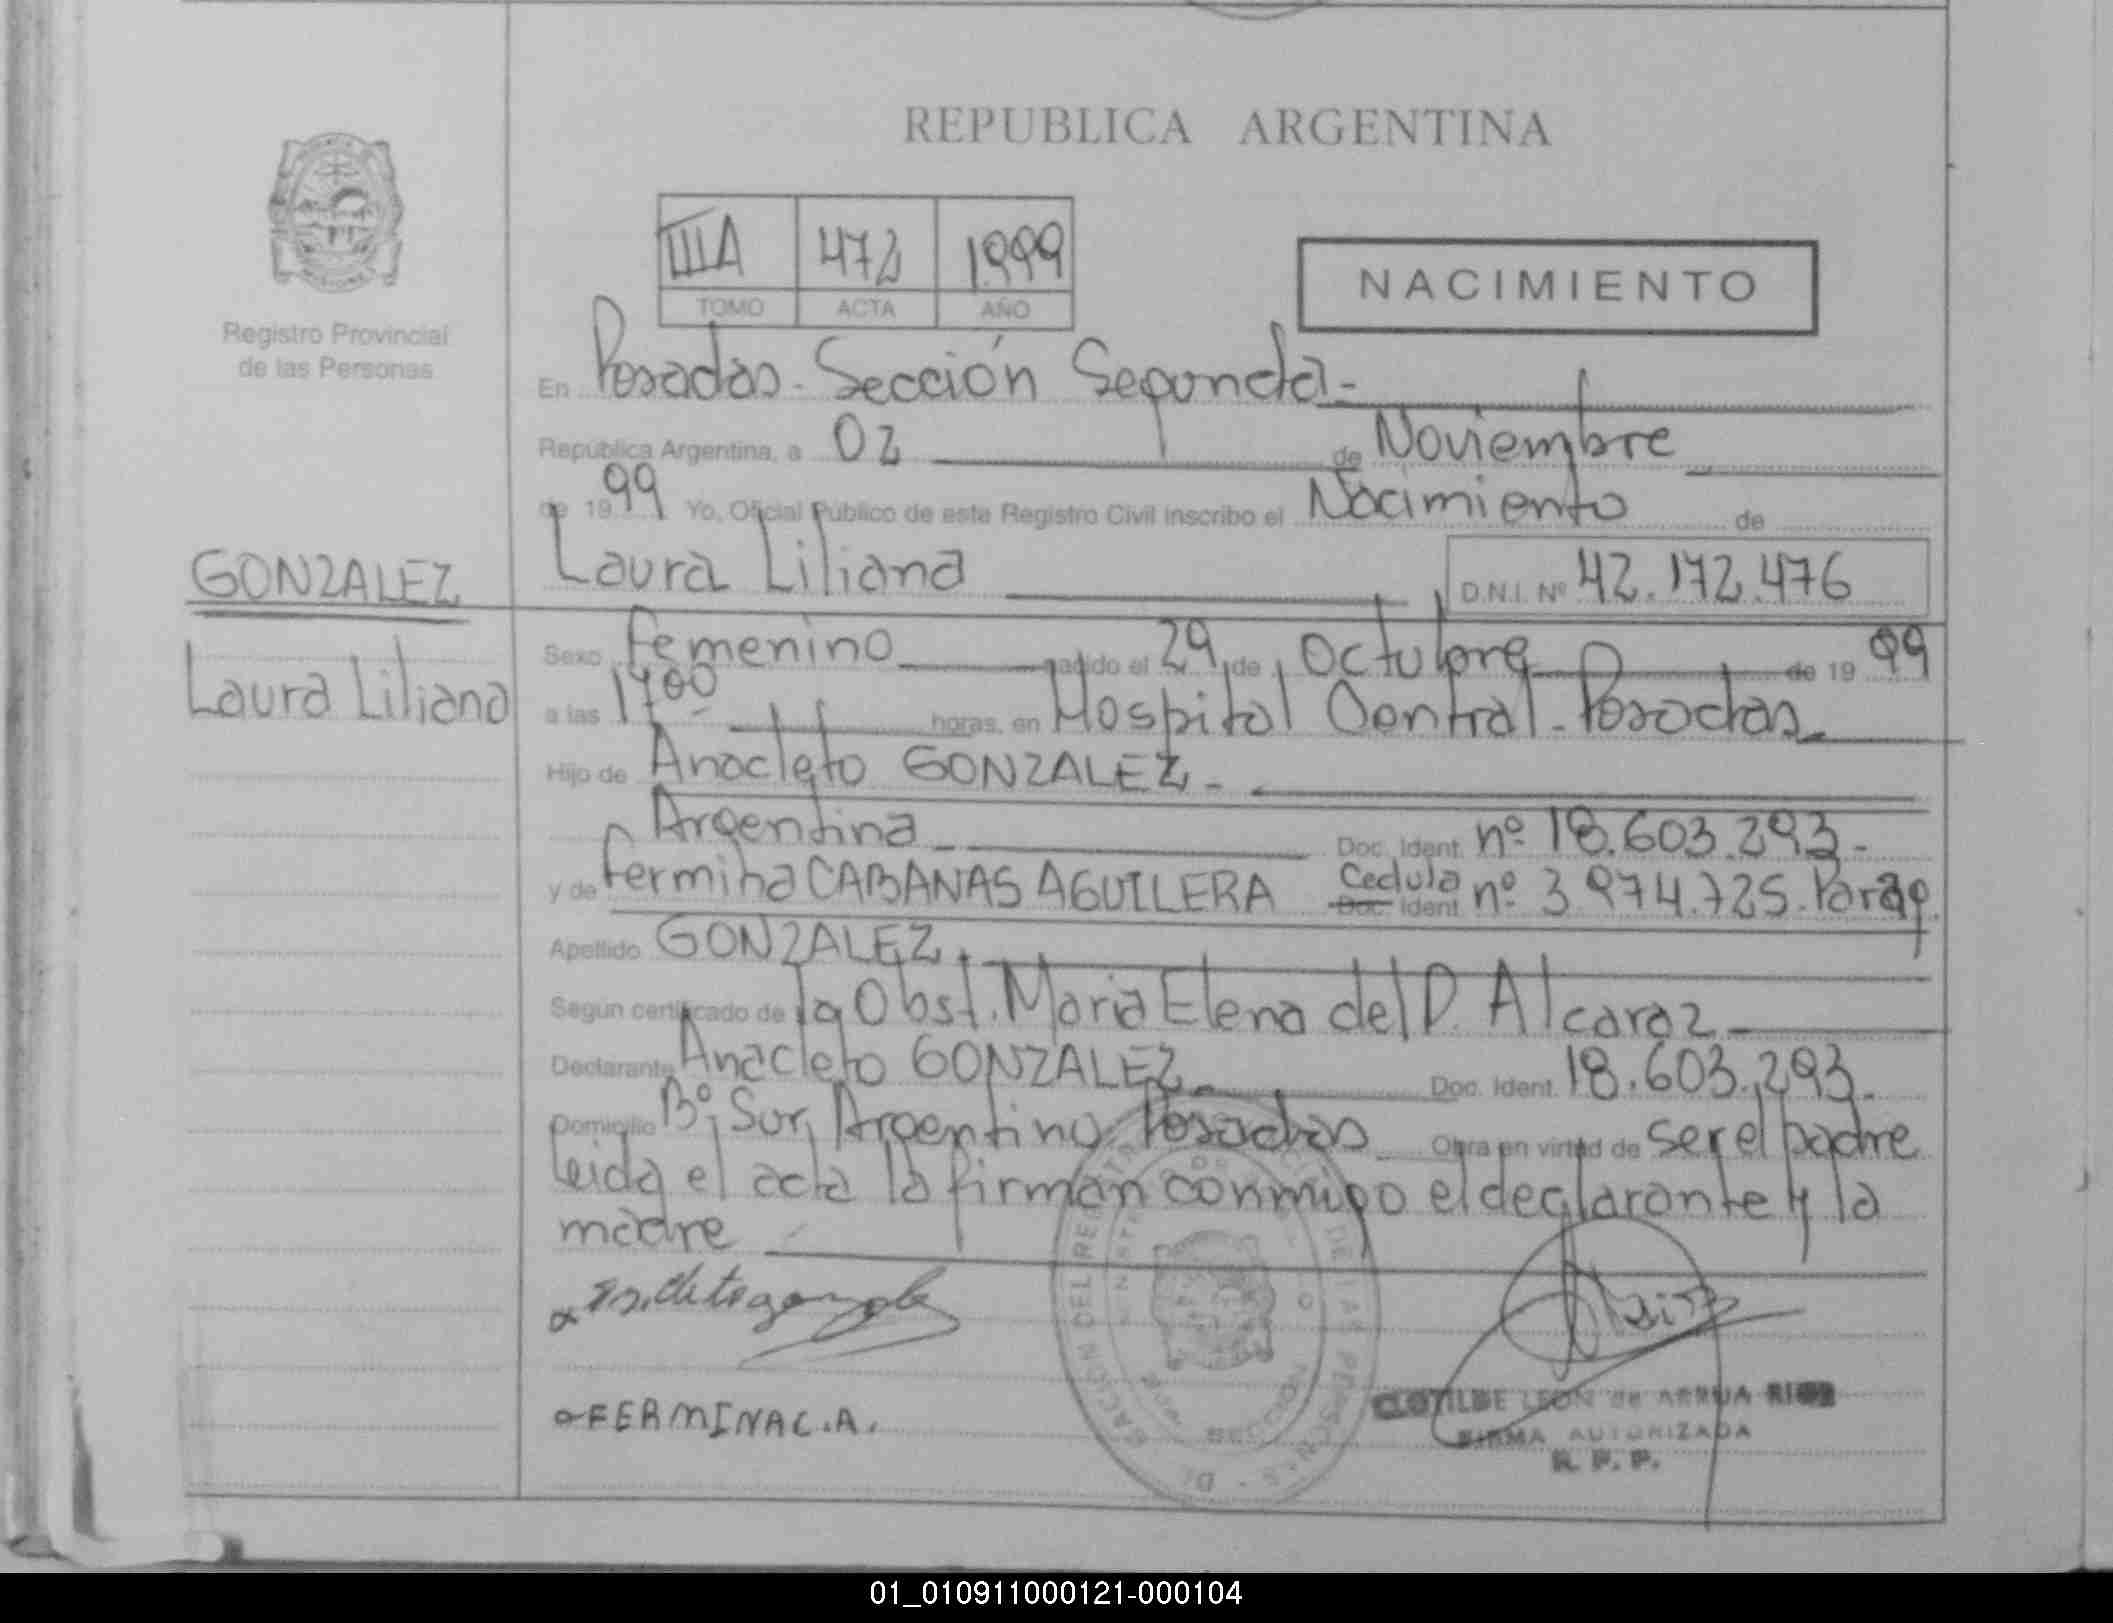 REPUBLICA ARGENTINA
IIIA 472 1999
TOMO ACTA AÑO
NACIMIENTO
Registro Provincial
de las Personas
En Posadas - Sección Segunda -
República Argentina, a 02 de Noviembre
de 1999 Yo, Oficial Público de este Registro Civil inscribo el Nacimiento de
GONZALEZ
Laura Liliana
Laura Liliana D.N.I. Nº 42.172.476
Sexo femenino nacido el 29 de Octubre de 1999
a las 1400 horas, en Hospital Central - Posadas
Hijo de Anacleto GONZALEZ -
Argentina Doc. Ident. nº 18.603.293 -
y de fermina CABANAS AGUILERA Cedula Doc. Ident nº 3.974.725. Parag
Apellido GONZALEZ
Según certificado de la Obst. Maria Elena del P. Alcaraz
Declarante Anacleto GONZALEZ Doc. Ident. 18.603.293
Domicilio Bº Sur Argentino Posadas Obra en virtud de ser el padre
leida el acta la firman conmigo el declarante y la
madre
FERMINA C.A.
CLOTILDE LEON de ARRUA RIOS
FIRMA AUTORIZADA
R. P. P.
01_010911000121-000104